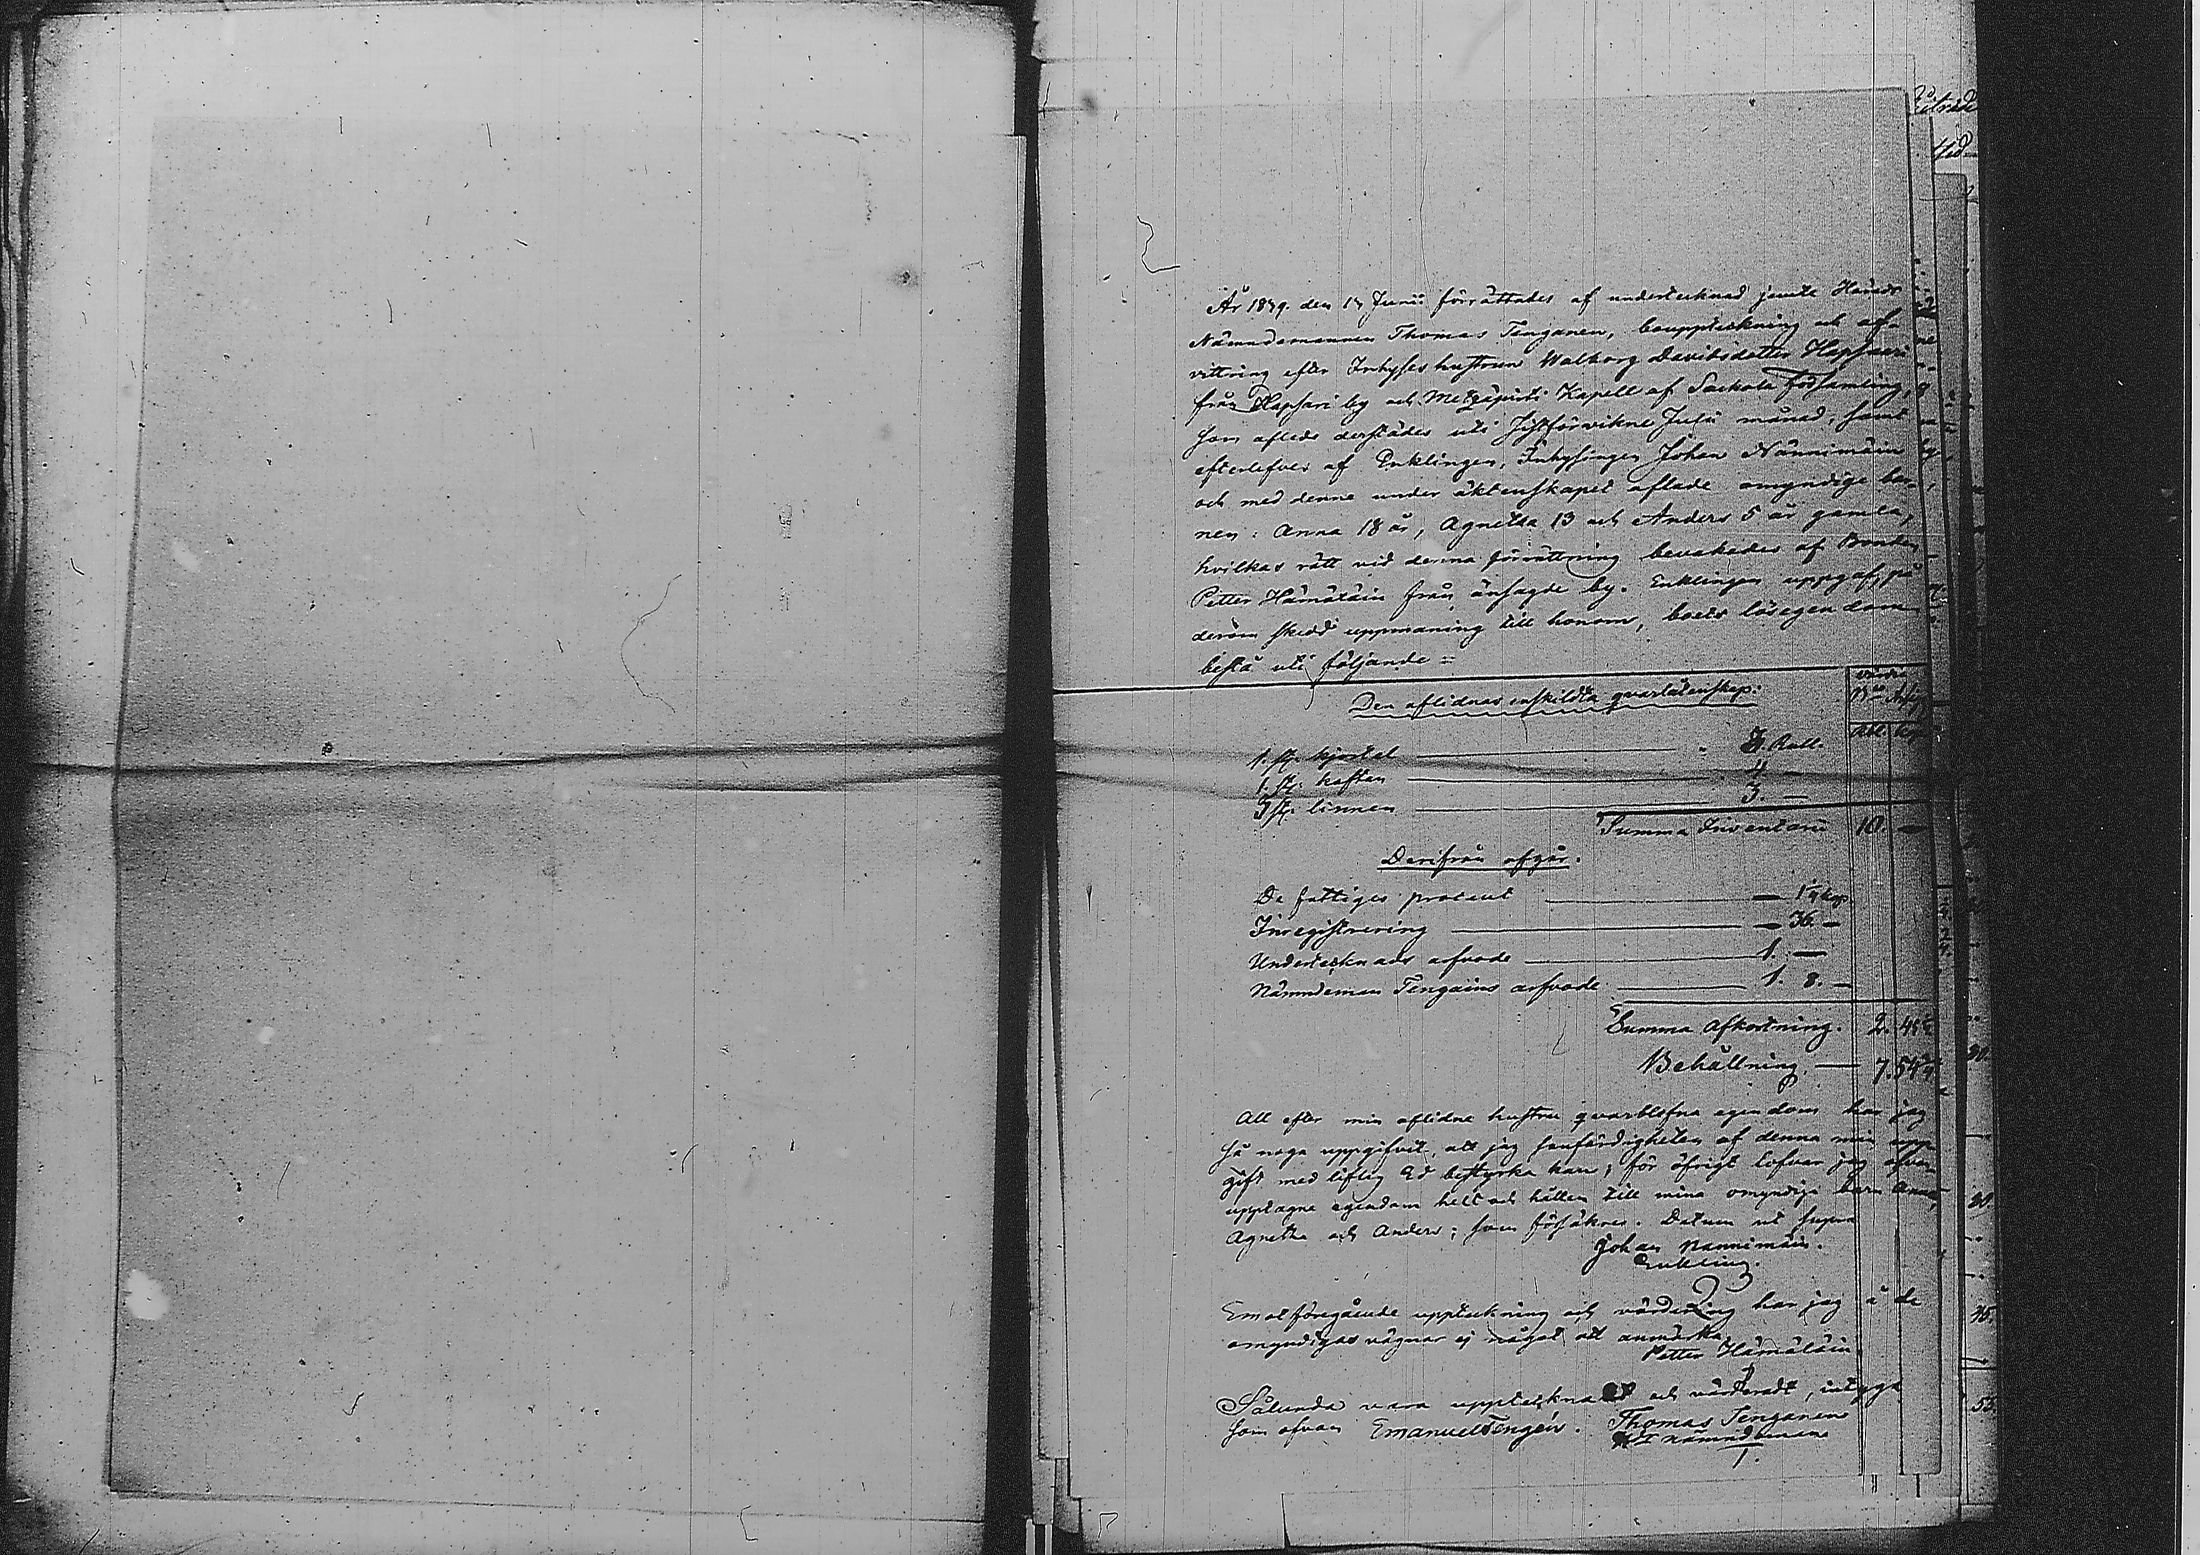 År 1839. den 17 Junii förrättades af undertecknad jemte Härads
Nämndemannen Thomas Tenganen, bouppteckning och af-
vittring efter Inhyses hustrun Walborg Davidsdotter Hapsari
från Hapsari by och Metzäpirti Kapell af Sackola Församling,
som afled derstädes uti sistförvikne Julii månad, samt
efterlefves af Enklingen, Inhysingen Johan Nännimäin
och med denne under äktenskapet aflade omyndige bar-
nen: Anna 18 år, Agnetha 13 och Anders 5 år gamla,
hvilkas rätt vid denna förrättning bevakades af Bonden
Petter Hämäläin från änsagde by. Enklingen uppgaf, på
derom skedd uppmaning till honom, boets lösegendom
bestå uti följande =
Den aflidnas enskildta qvarlåtenskap.
1. st. kjortel 3. Rubl.
1. st. kaftan 4 —
3 st. linnen 3. —
Summa Inventarii 10. —
Derifrån afgår.
De fattiges procent — 1 1/4 kop
Inregistrering — 36. —
Undertecknads arfvode 1. —
Nämndeman Tengains arfvode 1. 8. —
Summa Afkortning. 2. 45 1/4
Behållning — 7. 54 3/4
All efter min aflidne hustru qvarblefna egendom har jag
så noga uppgifvit, att jag sanfärdigheten af denna min upp-
gift med liflig Ed bestyrka kan; för öfrigt lofvar jag ofvan
upptagne egendom helt och hållen till mina omyndiga barn Anna,
Agnetha och Anders; som försäkras. Datum ut supra
Johan Nännimäin.
Enkling.
Emot föregående uppteckning och värdering har jag å de
omyndigas vägnar ej något att anmärka.
Petter Hämäläin
Sålunda vara upptecknadt och värderadt, intyga
som ofvan Emanuel Tengén. Thomas Tenganen
nämndeman